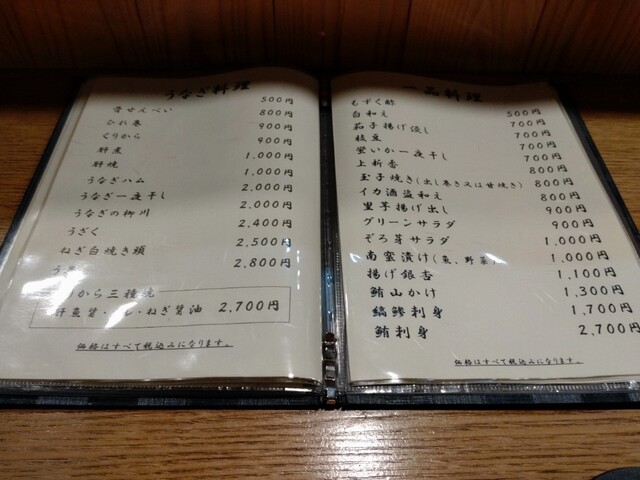 うなぎ料理
骨せんべい 500円
ひれ巻 800円
くりから 900円
肝煮 900円
肝焼 1,000円
うなぎハム 1,000円
うなぎ一夜干し 2,000円
うなぎの柳川 2,000円
うざく 2,400円
ねぎ白焼き 2,500円
う 2,800円
から三種焼
肝魚醤・ ・ねぎ醤油 2,700円
価格はすべて税込みになります。
一品料理
もずく酢 500円
白和え 700円
茄子揚げ浸し 700円
枝豆 700円
蛍いか一夜干し 700円
上新香 800円
玉子焼き(出し巻き又は甘焼き) 800円
イカ酒盗和え 800円
里芋揚げ出し 900円
グリーンサラダ 900円
ぞろ芽サラダ 1,000円
南蛮漬け(魚、野菜) 1,000円
揚げ銀杏 1,100円
鮪山かけ 1,300円
縞鯵刺身 1,700円
鮪刺身 2,700円
価格はすべて税込みになります。